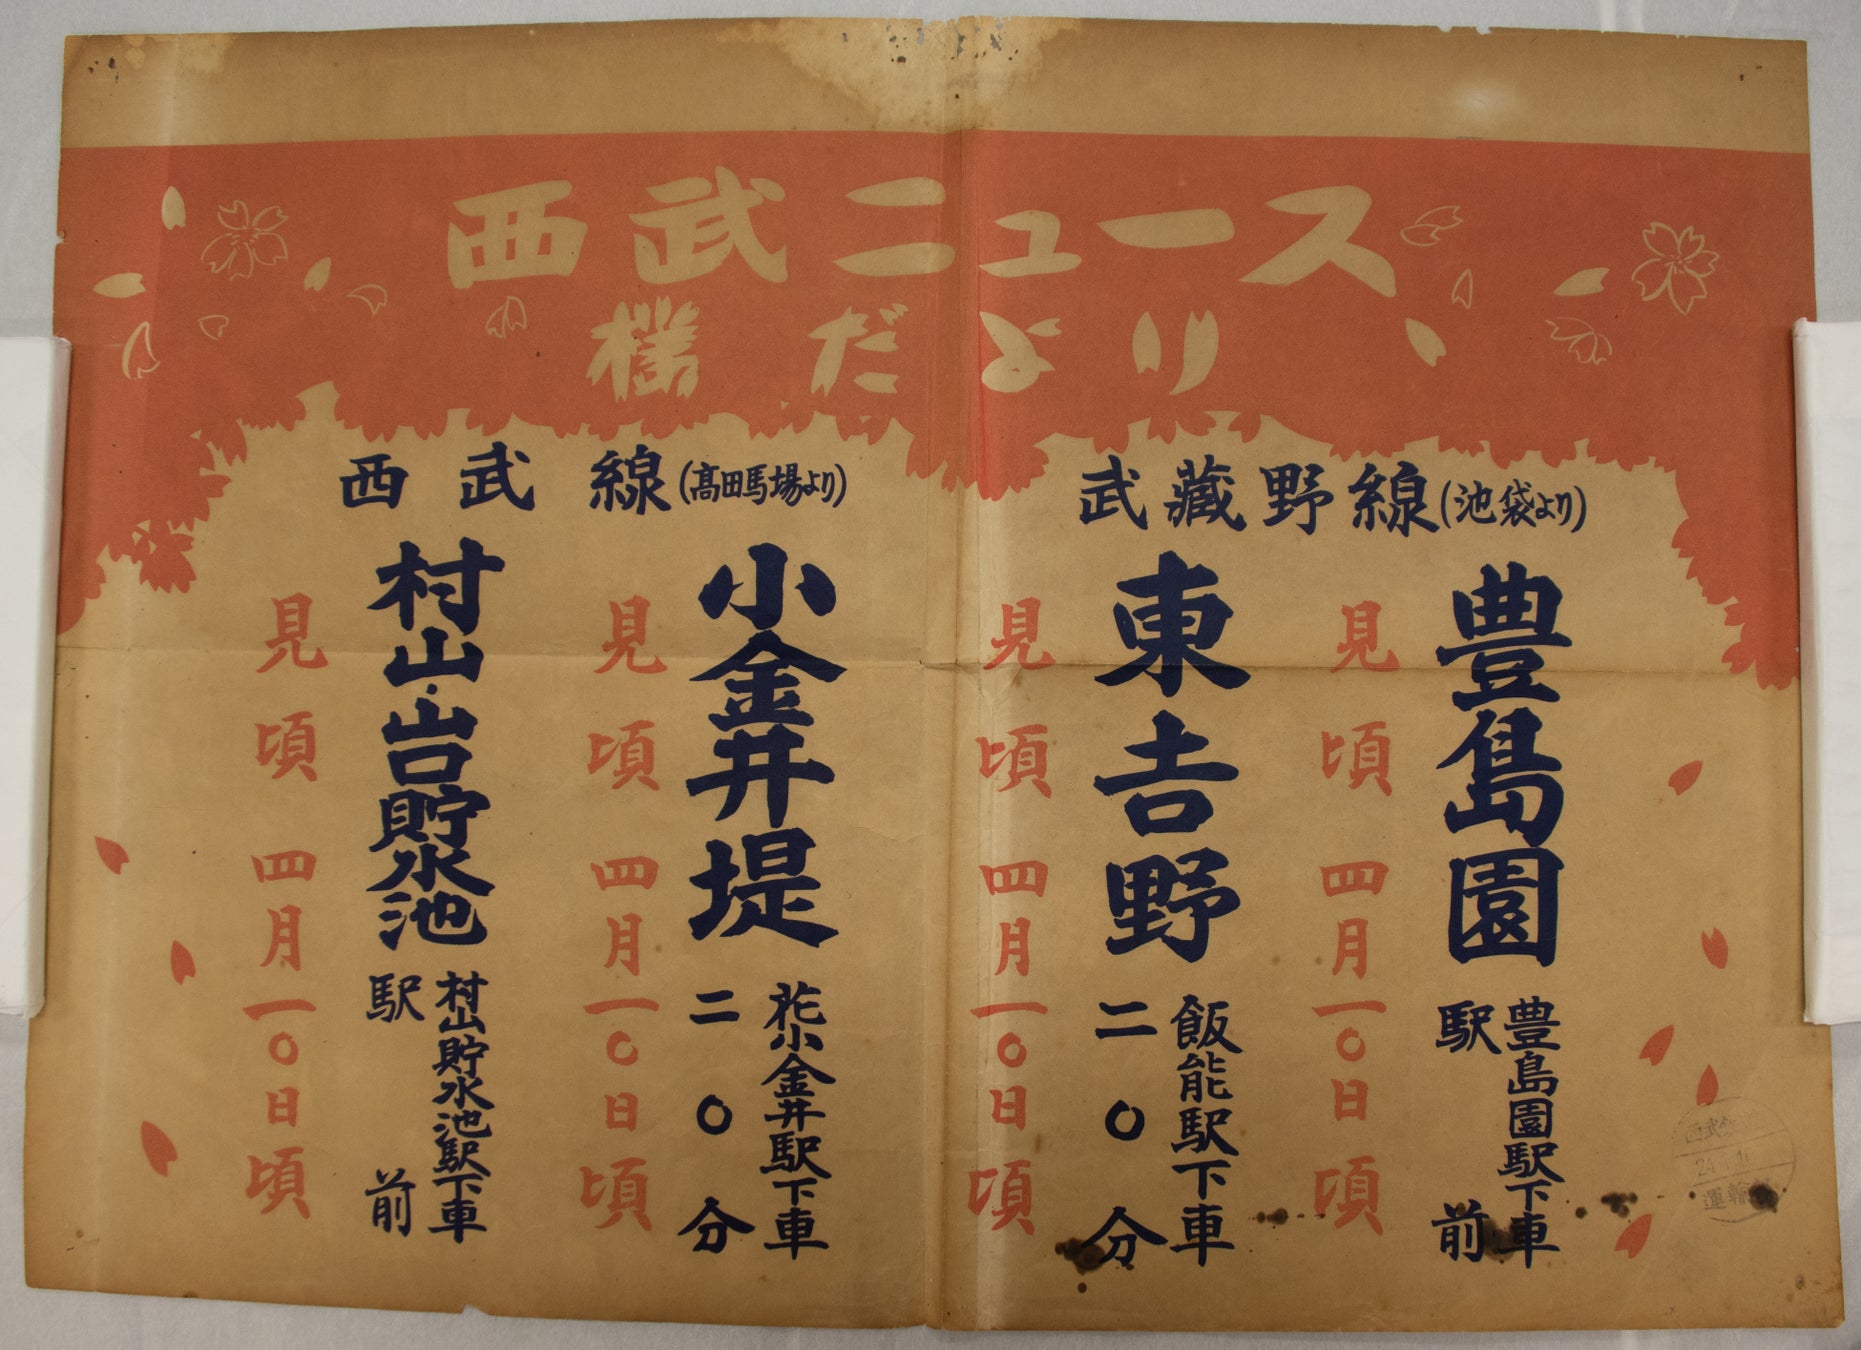 西武ニュース
櫻だより
武藏野線(池袋より)
豊島園
豊島園駅下車
駅前
見頃 四月一〇日頃
東吉野
飯能駅下車
二〇分
見頃 四月一〇日頃
西武線(髙田馬場より)
小金井堤
花小金井駅下車
二〇分
見頃 四月一〇日頃
村山・山口貯水池
村山貯水池駅下車
駅前
見頃 四月一〇日頃
西武
運輸